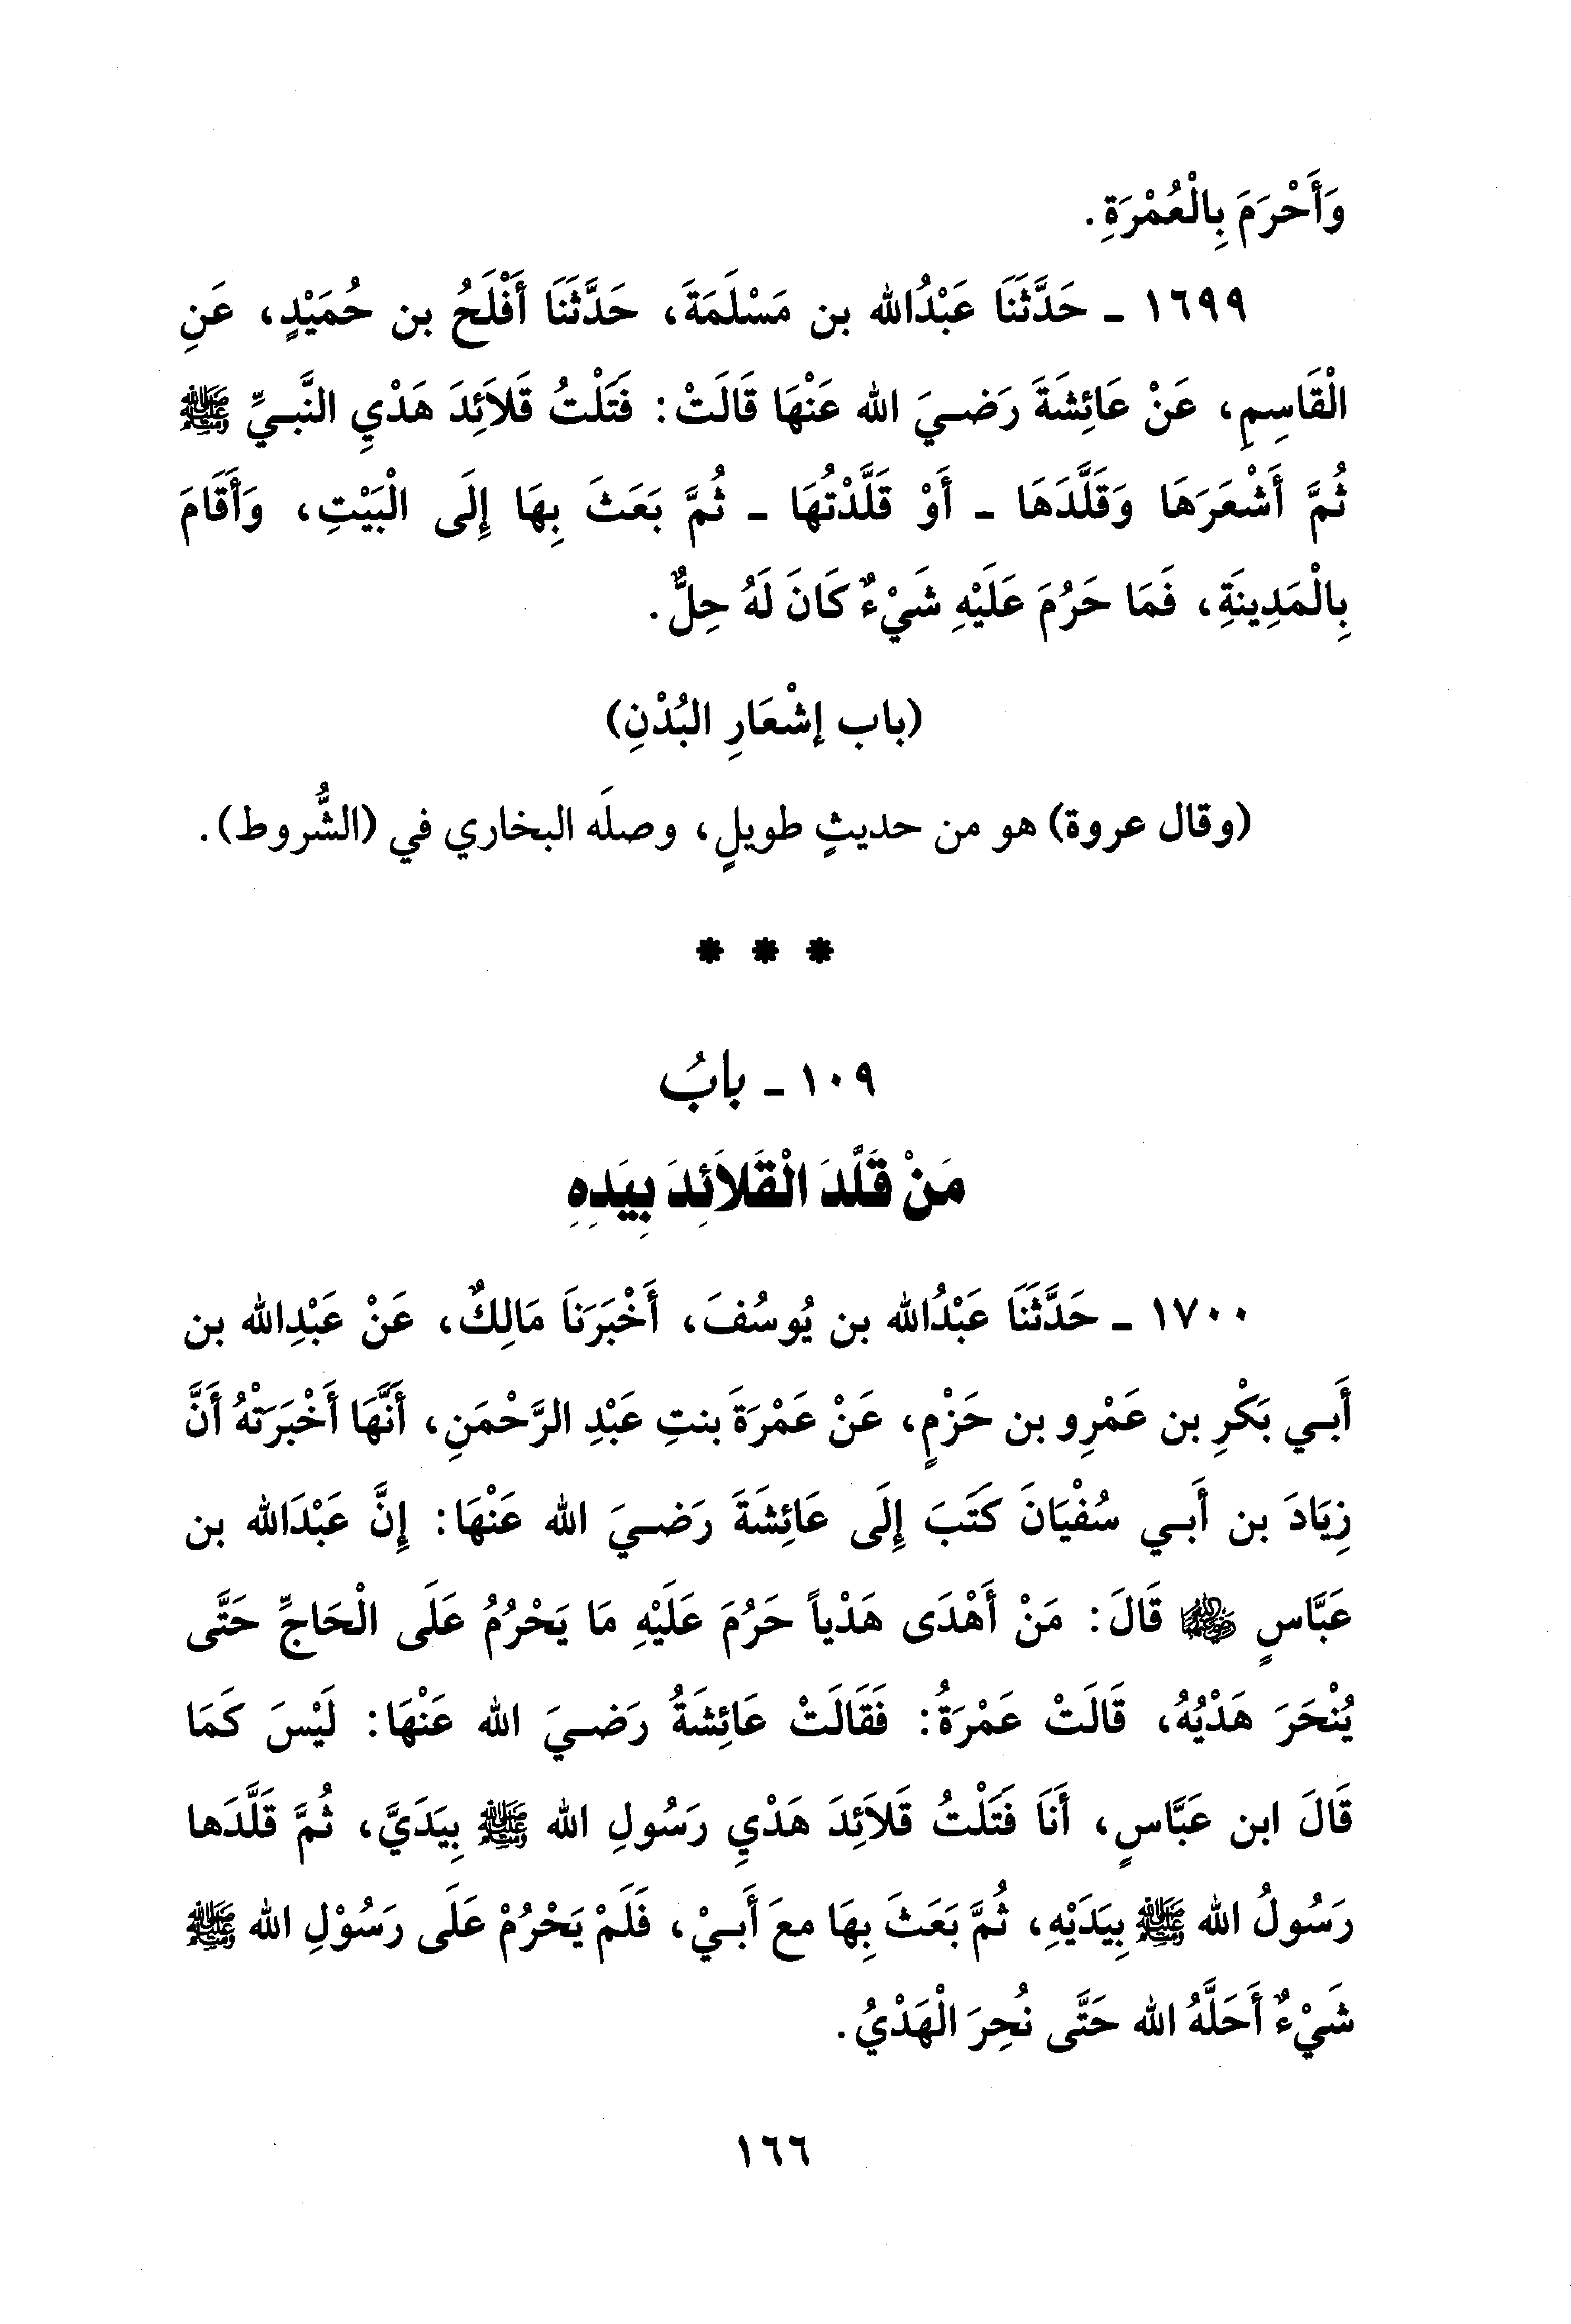 وَأَحْرَمَ بِالْعُمْرَةِ.
١٦٩٩ ـ حَدَّثَنَا عَبْدُالله بن مَسْلَمَةَ، حَدَّثَنَا أَفْلَحُ بن حُمَيْدٍ، عَنِ
الْقَاسِمِ، عَنْ عَائِشَةَ رَضيَ الله عَنْهَا قَالَتْ: فَتَلْتُ قَلاَئِدَ هَدْيِ النَّبيِّ ﷺ
ثُمَّ أَشْعَرَهَا وَقَلَّدَهَا ـ أَوْ قَلَّدْتُهَا ـ ثُمَّ بَعَثَ بِهَا إِلَى الْبَيْتِ، وَأَقَامَ
بِالْمَدِينَةِ، فَمَا حَرُمَ عَلَيْهِ شَيْءٌ كَانَ لَهُ حِلٌّ.
(باب إشْعَارِ البُدْنِ)
(وقال عروة) هو من حديثٍ طويلٍ، وصلَه البخاري في (الشُّروط).
* * *
١٠٩ ـ بابُ
مَنْ قَلَّدَ الْقَلاَئِدَ بِيَدِهِ
١٧٠٠ ـ حَدَّثَنَا عَبْدُالله بن يُوسُفَ، أَخْبَرَنَا مَالِكٌ، عَنْ عَبْدِالله بن
أَبي بَكْرِ بن عَمْرِو بن حَزْمٍ، عَنْ عَمْرَةَ بنتِ عَبْدِ الرَّحْمَنِ، أَنَّهَا أَخْبَرَتْهُ أَنَّ
زِيَادَ بن أَبي سُفْيَانَ كَتَبَ إِلَى عَائِشَةَ رَضيَ الله عَنْهَا: إِنَّ عَبْدَالله بن
عَبَّاسٍ ﵄ قَالَ: مَنْ أَهْدَى هَدْياً حَرُمَ عَلَيْهِ مَا يَحْرُمُ عَلَى الْحَاجِّ حَتَّى
يُنْحَرَ هَدْيُهُ، قَالَتْ عَمْرَةُ: فَقَالَتْ عَائِشَةُ رَضيَ الله عَنْهَا: لَيْسَ كَمَا
قَالَ ابن عَبَّاسٍ، أَنَا فَتَلْتُ قَلاَئِدَ هَدْيِ رَسُولِ الله ﷺ بِيَدَيَّ، ثُمَّ قَلَّدَها
رَسُولُ الله ﷺ بِيَدَيْهِ، ثُمَّ بَعَثَ بِهَا معَ أَبيْ، فَلَمْ يَحْرُمْ عَلَى رَسُوْلِ الله ﷺ
شَيْءٌ أَحَلَّهُ الله حَتَّى نُحِرَ الْهَدْيُ.
١٦٦